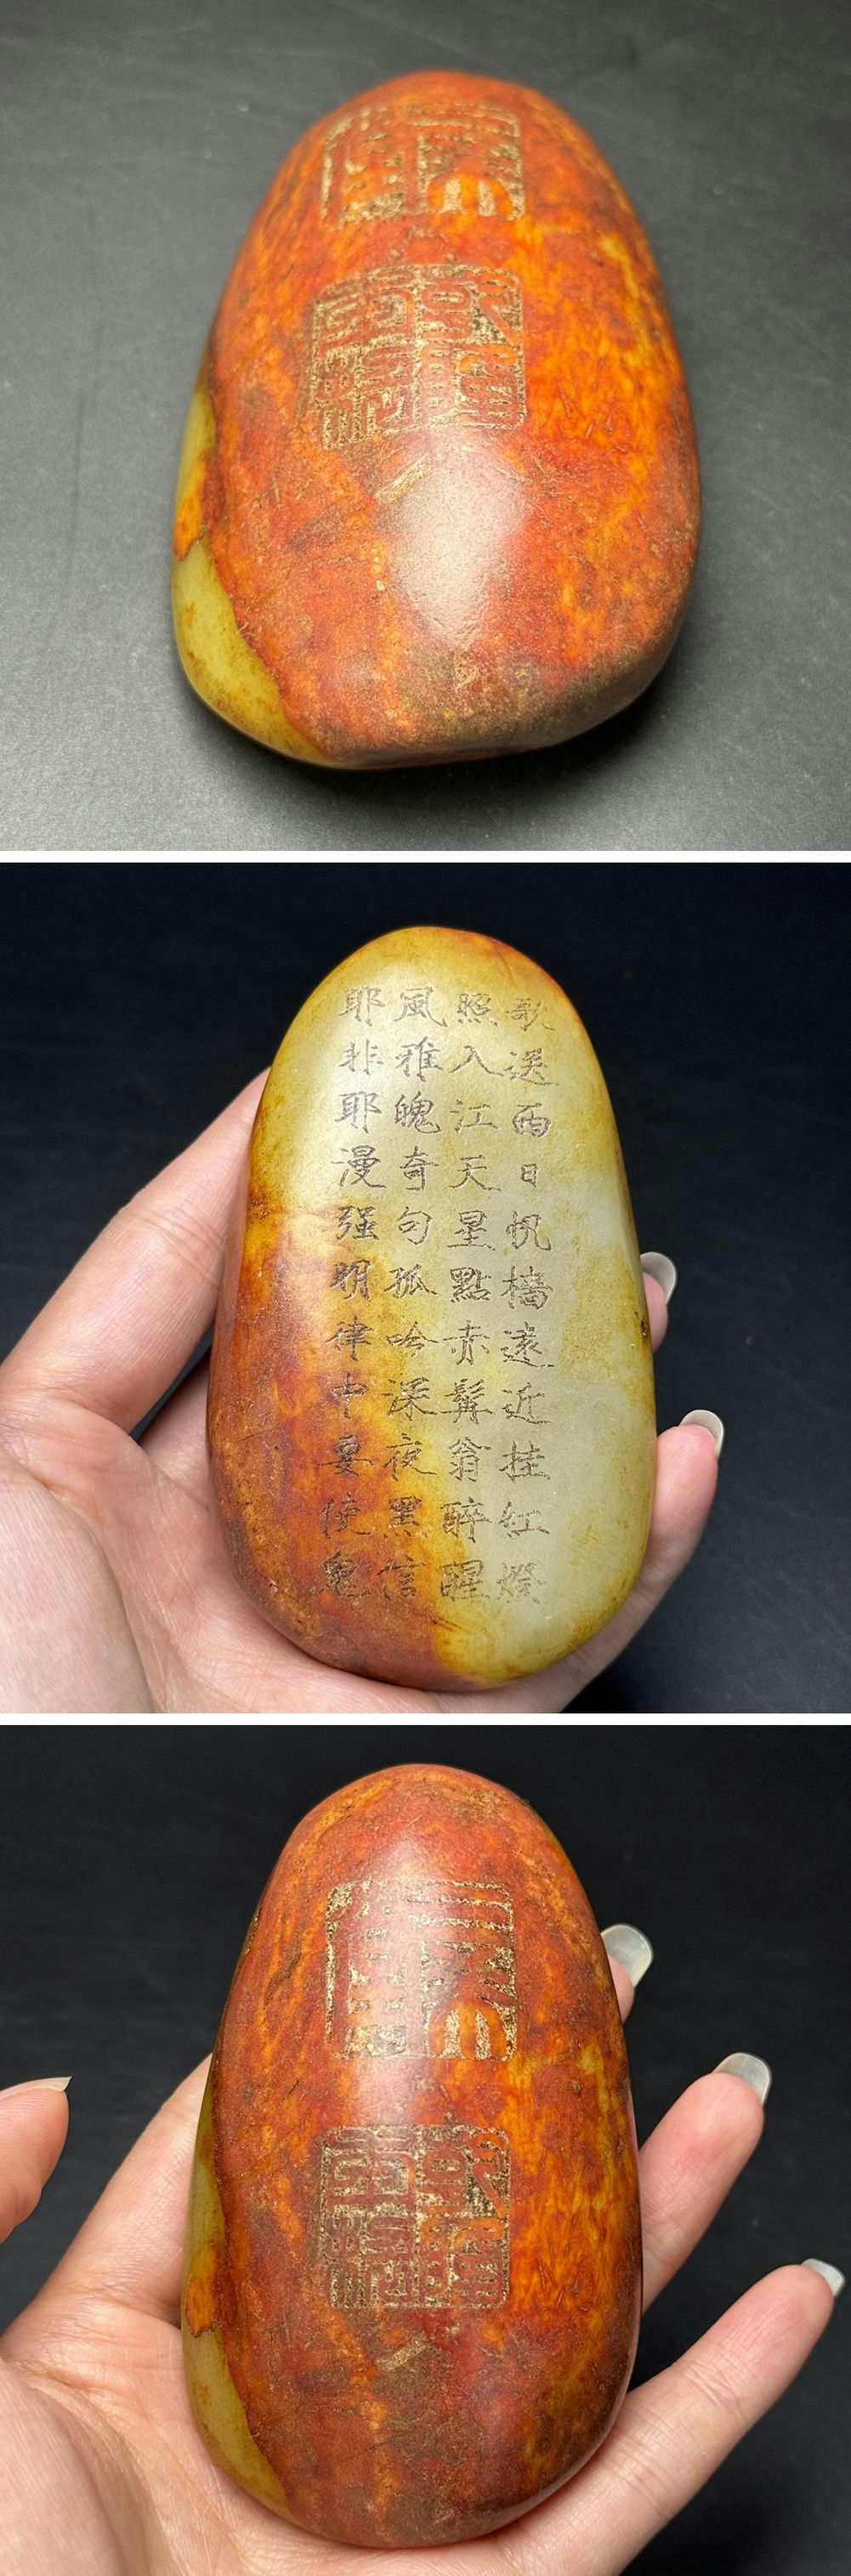 歌送西日帆檣遠近挂紅燈
照入江天星點赤髯翁醉醒
風雅魄奇句孤吟深夜黑信
耶非耶漫强明律中要使鬼